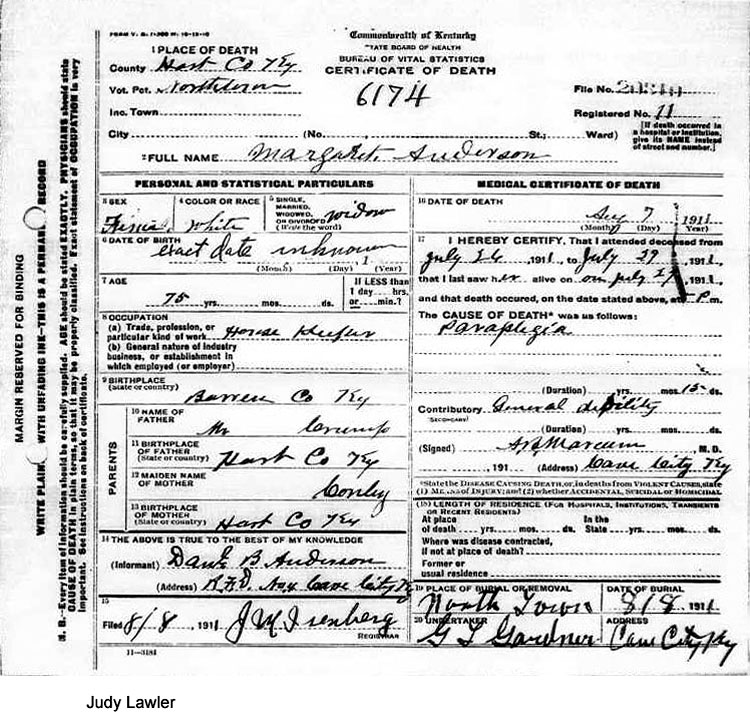 Commonwealth of Kentucky
STATE BOARD OF HEALTH
BUREAU OF VITAL STATISTICS
CERTIFICATE OF DEATH
1 PLACE OF DEATH
County Hart Co Ky
Vot. Pct. Northtown
Inc. Town
City (No. St.; Ward)
6174
File No.
Registered No. 11
[If death occurred in a hospital or institution, give its NAME instead of street and number.]
2 FULL NAME Margaret Anderson
PERSONAL AND STATISTICAL PARTICULARS
3 SEX
4 COLOR OR RACE White
5 SINGLE, MARRIED, WIDOWED OR DIVORCED (Write the word) widow
6 DATE OF BIRTH exact date unknown, 1
(Month) (Day) (Year)
7 AGE
75 yrs. mos. ds.
If LESS than 1 day hrs. or min.?
8 OCCUPATION
(a) Trade, profession, or particular kind of work House Keeper
(b) General nature of industry business, or establishment in which employed (or employer)
9 BIRTHPLACE
(State or country) Barren Co Ky
PARENTS
10 NAME OF FATHER Mr Crump
11 BIRTHPLACE OF FATHER
(State or country) Hart Co Ky
12 MAIDEN NAME OF MOTHER Conley
13 BIRTHPLACE OF MOTHER
(State or country) Hart Co Ky
14 THE ABOVE IS TRUE TO THE BEST OF MY KNOWLEDGE
(Informant) Danl B Anderson
(Address) R.F.D. No 4 Cave City Ky
15
Filed 8/8 1911 J M Isenberg
REGISTRAR
11-3184
MEDICAL CERTIFICATE OF DEATH
16 DATE OF DEATH
Aug 7 1911
(Month) (Day) (Year)
17 I HEREBY CERTIFY, That I attended deceased from
July 26 1911 to July 29 1911,
that I last saw her alive on on July 29 1911,
and that death occured, on the date stated above, at P m.
The CAUSE OF DEATH* was as follows:
Paraplegia
(Duration) yrs. mos. 15 ds.
Contributory General debility
(SECONDARY)
(Duration) yrs. mos. ds.
(Signed) Marcum, M.D.
, 191 (Address) Cave City Ky
*State the DISEASE CAUSING DEATH, or, in deaths from VIOLENT CAUSES, state
(1) MEANS OF INJURY; and (2) whether ACCIDENTAL, SUICIDAL or HOMICIDAL
(18) LENGTH OF RESIDENCE (FOR HOSPITALS, INSTITUTIONS, TRANSIENTS OR RECENT RESIDENTS)
At place of death yrs. mos. ds. In the State yrs. mos. ds.
Where was disease contracted, if not at place of death?
Former or usual residence
19 PLACE OF BURIAL OR REMOVAL
North Town
DATE OF BURIAL
8/8 1911
20 UNDERTAKER
G L Gardner
ADDRESS
Cave City Ky
MARGIN RESERVED FOR BINDING
WRITE PLAIN WITH UNFADING INK—THIS IS A PERMA RECORD
N. B.—Every item of information should be carefully supplied. AGE should be stated EXACTLY. PHYSICIANS should state
CAUSE OF DEATH in plain terms, so that it may be properly classified. Exact statement of OCCUPATION is very
important. See instructions on back of certificate.
Judy Lawler